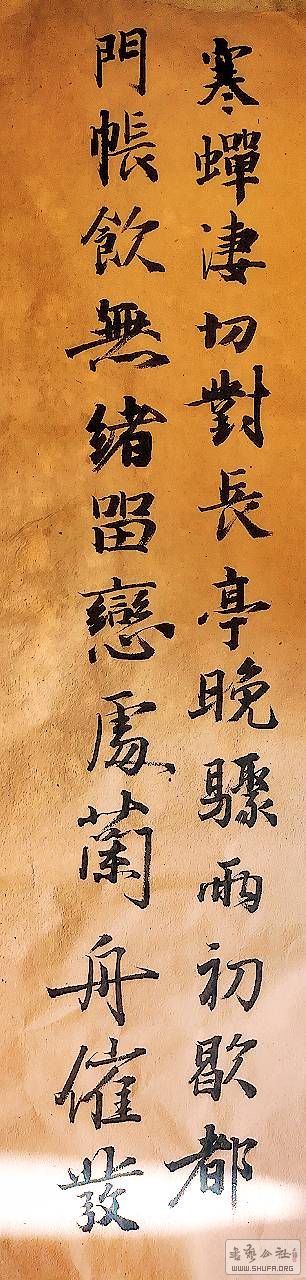 寒蟬淒切對長亭晚驟雨初歇都
門帳飲無緒留戀處蘭舟催發
書藝公社
WWW.SHUFA.ORG